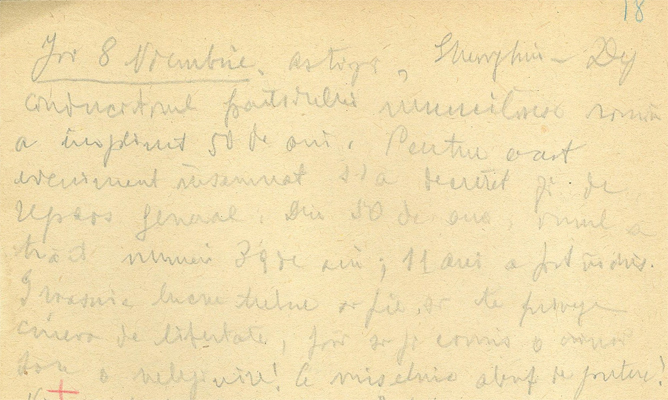 18
Joi 8 Noembrie, astăzi, Gheorghiu-Dej
conducătorul partidului muncitoresc român
a împlinit 50 de ani. Pentru acest
eveniment însemnat s'a decretat zi de
repaos general. Din 50 de ani, omul a
trăit numai 39 de ani; 11 ani a fost închis.
Groaznic lucru trebue să fie, să te priveze
cineva de libertate, fără să fi comis o crimă
sau o nelegiuire! Ce mișelnic abuz de putere!